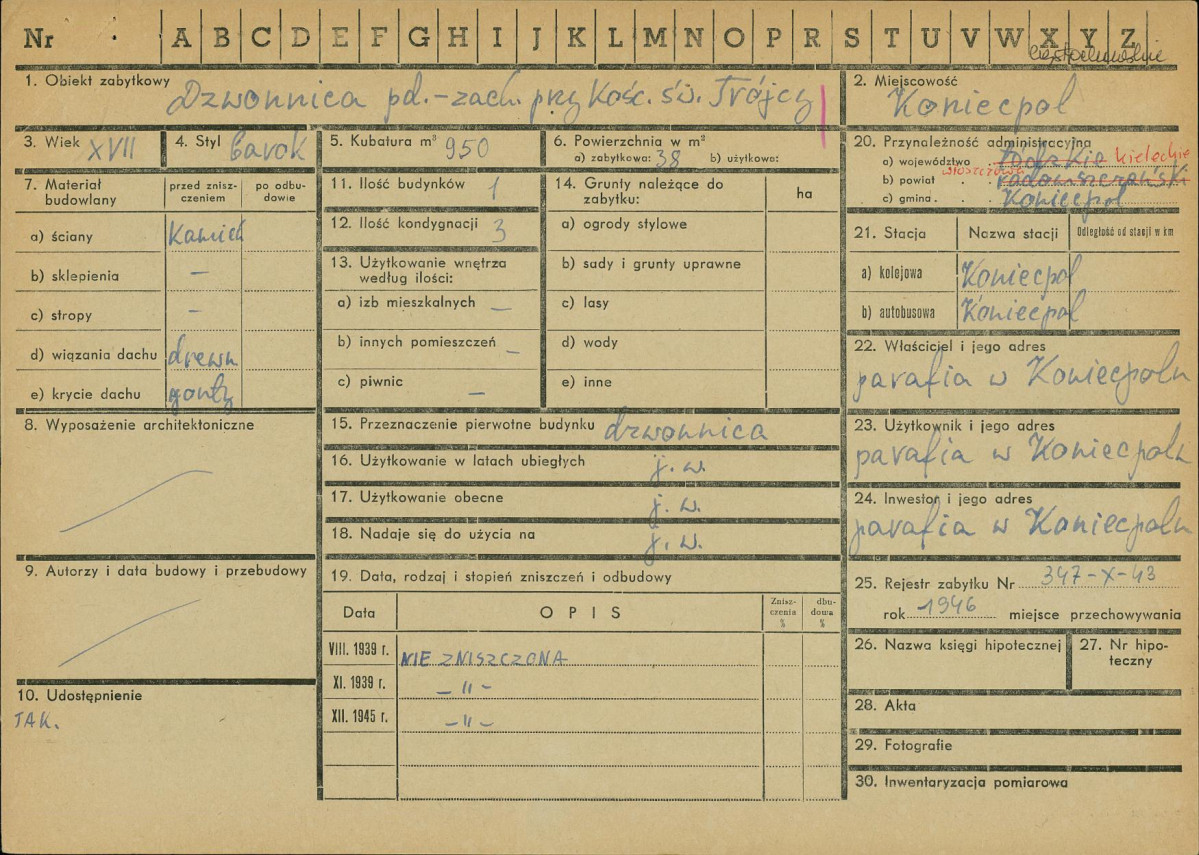 Nr A B C D E F G H I J K L M N O P R S T U V W X Y Z
częstochowskie
1. Obiekt zabytkowy Dzwonnica pd.-zach. przy Kość. św. Trójcy
2. Miejscowość Koniecpol
3. Wiek XVII
4. Styl barok
5. Kubatura m³ 950
6. Powierzchnia w m²
a) zabytkowa: 38 b) użytkowa:
7. Materiał budowlany
przed zniszczeniem
po odbudowie
a) ściany kamień
b) sklepienia –
c) stropy –
d) wiązania dachu drewn
e) krycie dachu gonty
8. Wyposażenie architektoniczne
9. Autorzy i data budowy i przebudowy
10. Udostępnienie
TAK.
11. Ilość budynków 1
12. Ilość kondygnacji 3
13. Użytkowanie wnętrza
według ilości:
a) izb mieszkalnych –
b) innych pomieszczeń –
c) piwnic –
14. Grunty należące do
zabytku:
ha
a) ogrody stylowe
b) sady i grunty uprawne
c) lasy
d) wody
e) inne
15. Przeznaczenie pierwotne budynku dzwonnica
16. Użytkowanie w latach ubiegłych j. w.
17. Użytkowanie obecne j. w.
18. Nadaje się do użycia na j. w.
19. Data, rodzaj i stopień zniszczeń i odbudowy
Data OPIS Zniszczenia % dbudowa %
VIII. 1939 r. NIE ZNISZCZONA
XI. 1939 r. – " –
XII. 1945 r. – " –
20. Przynależność administracyjna
a) województwo łódzkie kieleckie
włoszczowa
b) powiat radomszczański
c) gmina Koniecpol
21. Stacja Nazwa stacji Odległość od stacji w km
a) kolejowa Koniecpol
b) autobusowa Koniecpol
22. Właściciel i jego adres
parafia w Koniecpolu
23. Użytkownik i jego adres
parafia w Koniecpolu
24. Inwestor i jego adres
parafia w Koniecpolu
25. Rejestr zabytku Nr 347-X-43
rok 1946 miejsce przechowywania
26. Nazwa księgi hipotecznej
27. Nr hipoteczny
28. Akta
29. Fotografie
30. Inwentaryzacja pomiarowa